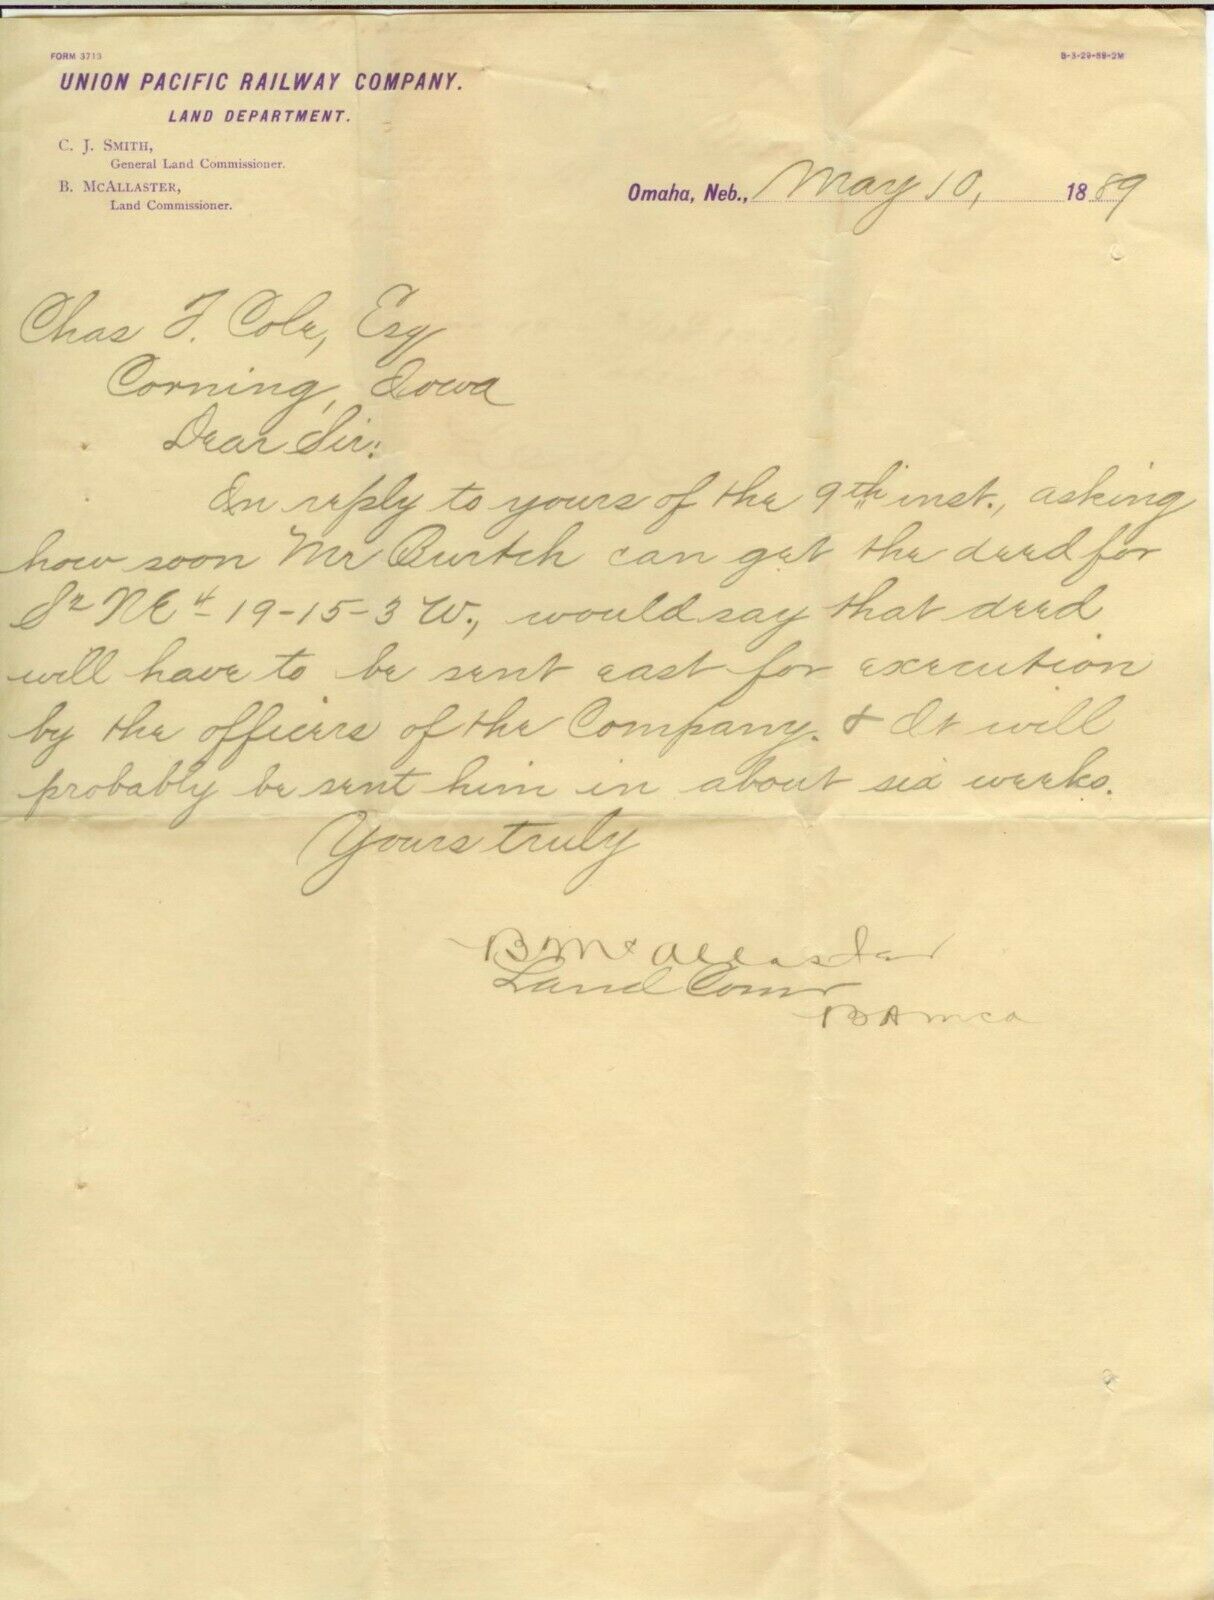 FORM 3713
B-3-29-89-2M
UNION PACIFIC RAILWAY COMPANY.
LAND DEPARTMENT.
C. J. SMITH,
General Land Commissioner.
B. MCALLASTER,
Land Commissioner.
Omaha, Neb., May 10, 1889
Chas F. Cole, Esq
Corning, Iowa
Dear Sir:
In reply to yours of the 9th inst., asking
how soon Mr Burtch can get the deed for
S2 NE4 19-15-3 W., would say that deed
will have to be sent east for execution
by the officers of the Company. & It will
probably be sent him in about six weeks.
Yours truly
B McAllaster
Land Comr
BAMcA